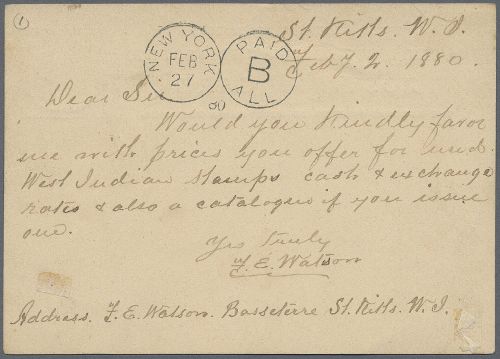 1
St. Kitts. W. I.
Feby. 2. 1880.
NEW YORK
FEB
27
80
PAID
B
ALL
Dear Sir
Would you kindly favor
me with prices you offer for used
West Indian Stamps cash & exchange
rates & also a catalogue if you issue
one.
Yrs truly
F. E. Watson
Address. F. E. Watson. Basseterre St. Kitts. W. I.